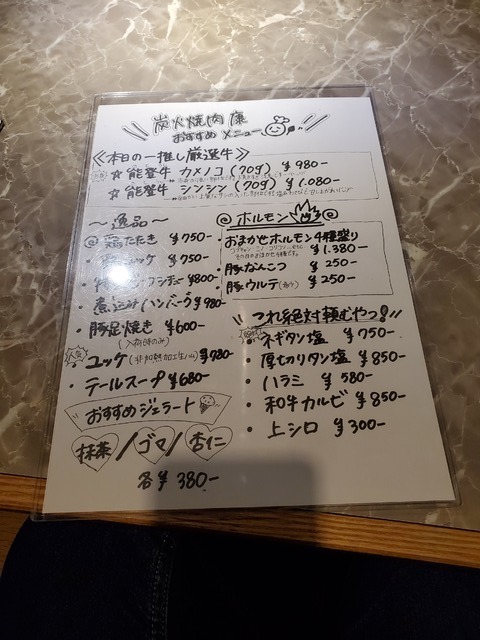 炭火焼肉 康
おすすめ メニュー
≪本日の一推し厳選牛≫
☆ 能登牛 カメノコ (70g) ¥980-
☆ 能登牛 シンシン (70g) ¥1.080-
〜 逸品 〜
たたき ¥750-
ユッケ ¥750-
シチュー ¥800-
煮込みハンバーグ ¥980-
・豚足焼き ¥600-
人気
・ユッケ (非加熱加工生ハム) ¥780-
・テールスープ ¥680-
おすすめジェラート
抹茶 / ゴマ / 杏仁
各 ¥380-
◎ ホルモン ◎
・おまかせホルモン4種盛り
¥1.380-
・豚なんこつ ¥250-
・豚ウルテ ¥250-
これ絶対頼むやつ!
・ネギタン塩 ¥750-
・厚切りタン塩 ¥850-
・ハラミ ¥580-
・和牛カルビ ¥850-
・上シロ ¥300-